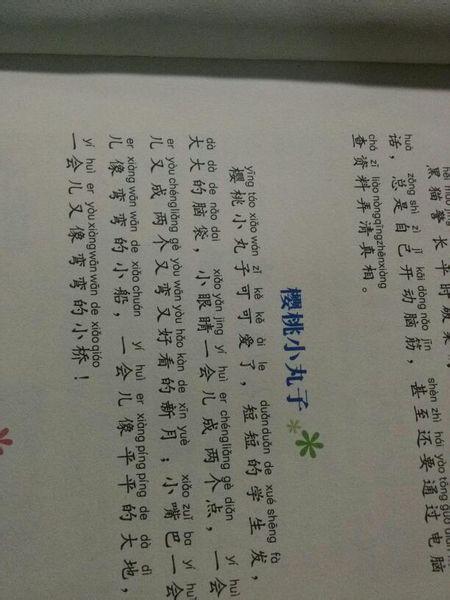 黑猫警长平时破案
huà zǒng shì zì jǐ kāi dòng nǎo jīn shèn zhì hái yào tōng guò
话，总是自己开动脑筋，甚至还要通过电脑
chá zī liào nòng qīng zhēn xiàng
查资料弄清真相。
樱桃小丸子
yīng táo xiǎo wán zǐ kě kě ài le duǎn duǎn de xué shēng fà
樱桃小丸子可可爱了，短短的学生发，
dà dà de nǎo dai xiǎo yǎn jing yí huì er chéng liǎng gè diǎn yí huì
大大的脑袋，小眼睛一会儿成两个点，一会
er yòu chéng liǎng gè yòu wān yòu hǎo kàn de xīn yuè xiǎo zuǐ ba yí huì
儿又成两个又弯又好看的新月；小嘴巴一会
er xiàng wān wān de xiǎo chuán yí huì er xiàng píng píng de dà dì
儿像弯弯的小船，一会儿像平平的大地，
yí huì er yòu xiàng wān wān de xiǎo qiáo
一会儿又像弯弯的小桥！